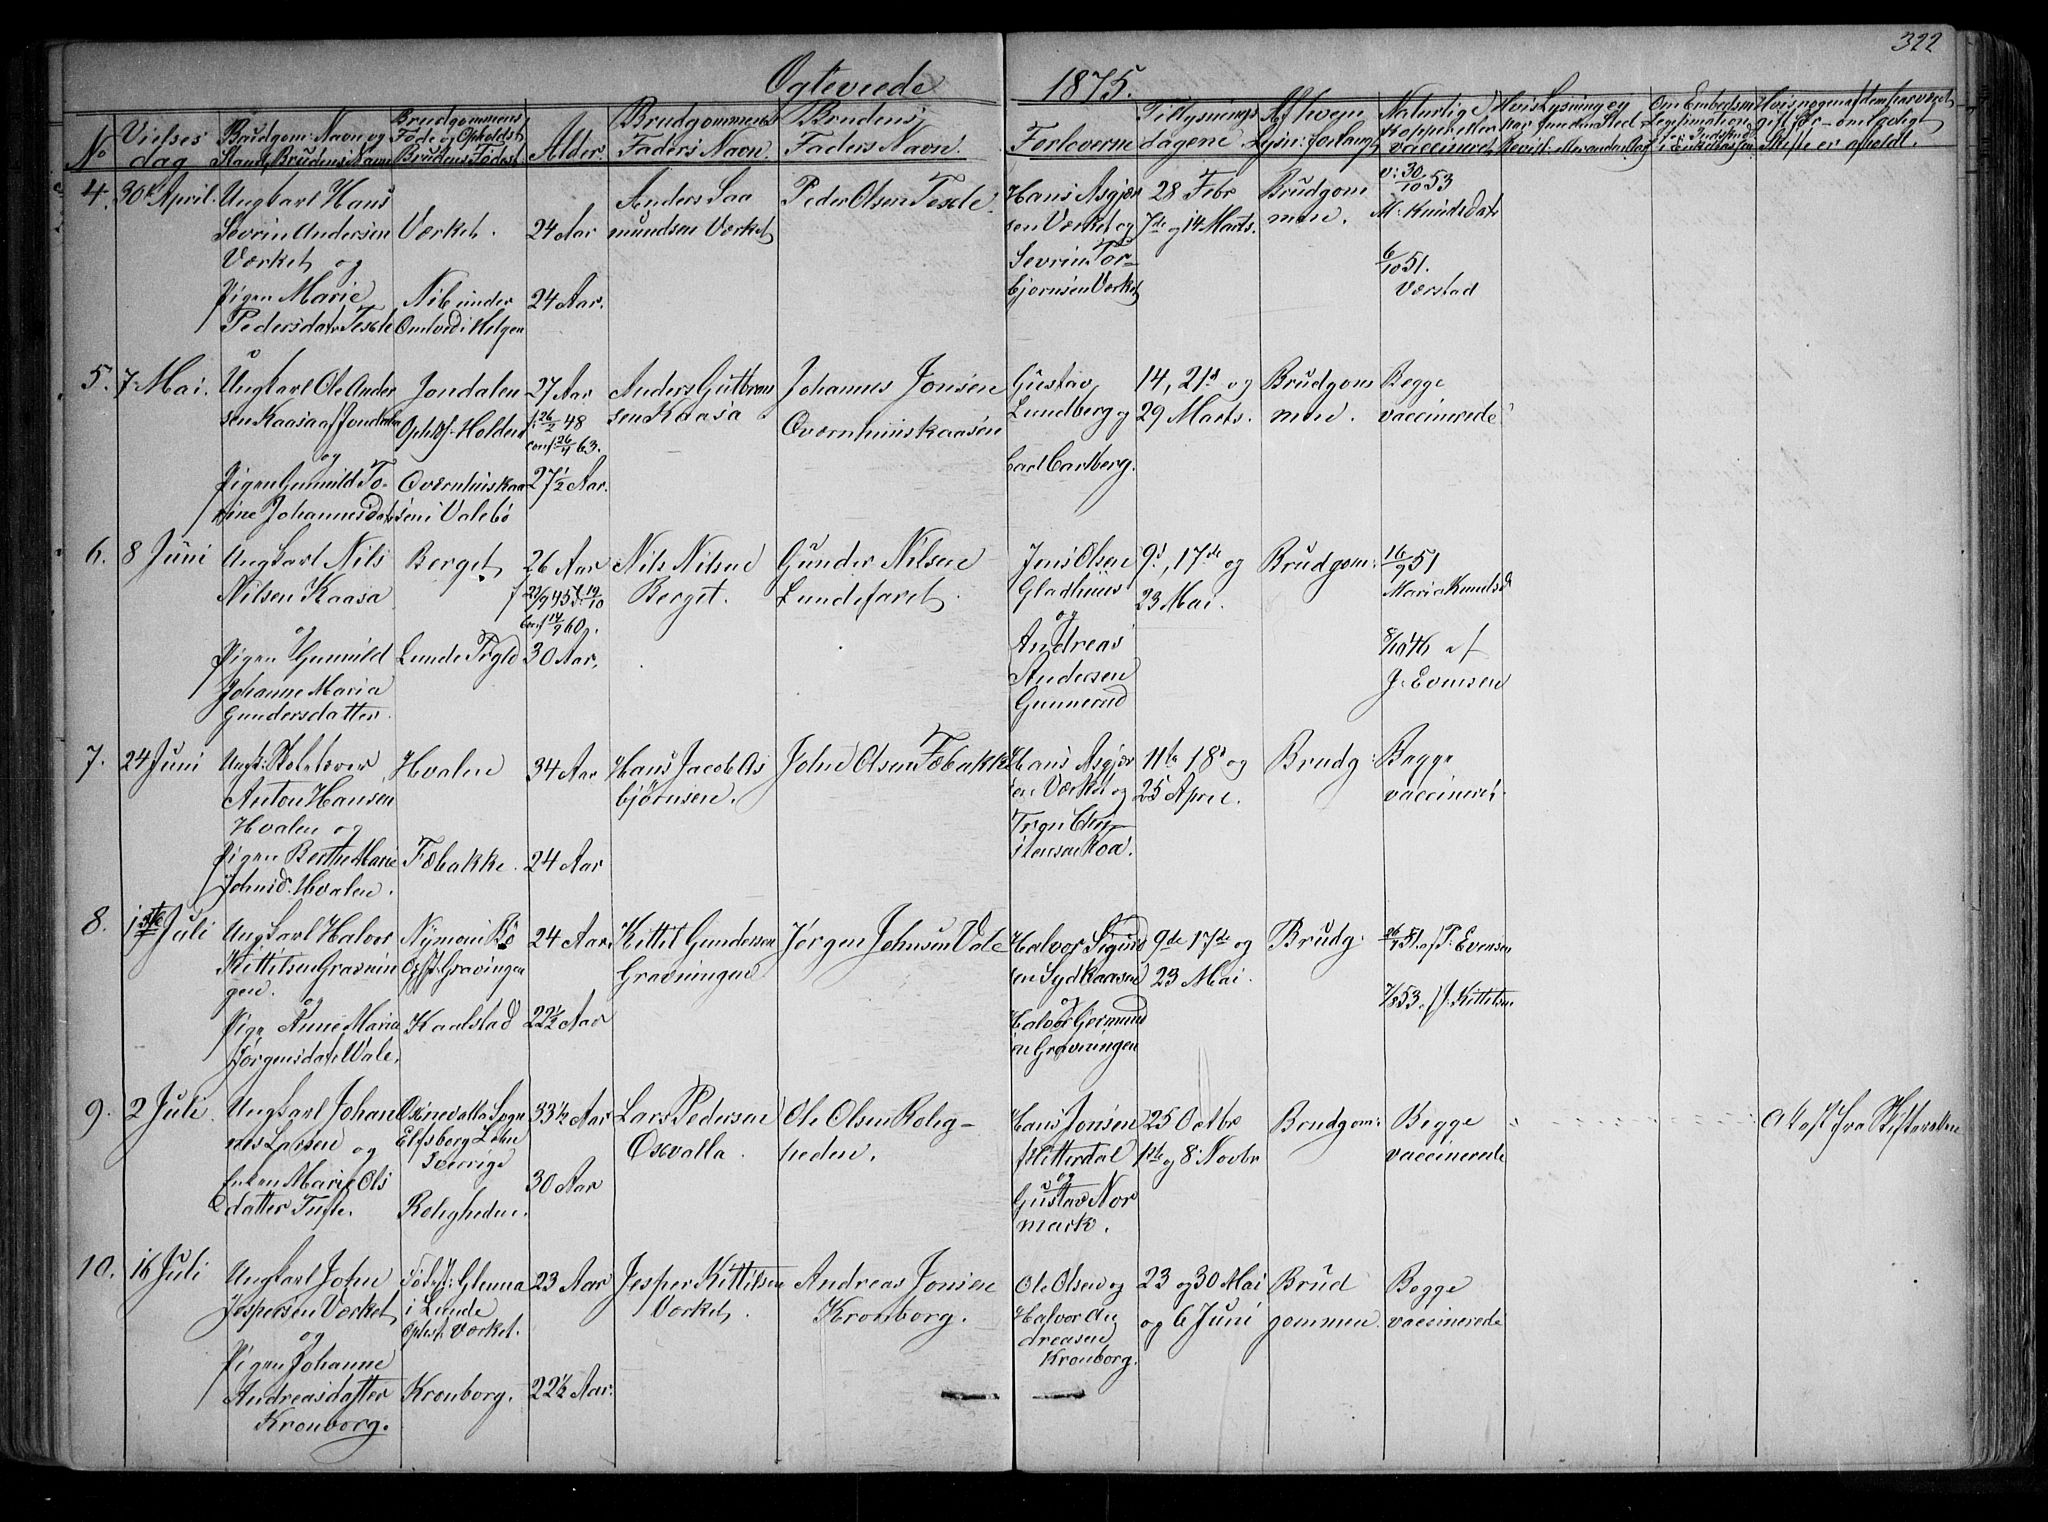 322
Ogteviede
1875.
No
Vielses dag
Brudgom: Navn og Stand, Brudens Navn
Brudgommens Føde og Opholdst Brudens Fødest
Alder.
Brudgommens Faders Navn.
Brudens Faders Navn.
Forloverne
Tillysnings dagene
Af hvem Lysn: forlangt
Naturlige Kopper eller vaccineret
4.
30te April.
Ungkarl Hans
Sevrin Andersen
Værket og
Pigen Marie
Pedersdatr Tesele
Værket.
Nib under
Omtved i Helgen
24 Aar
24 Aar.
Anders Saa
mundsen Værket
Peder Olsen Tesele.
Hans Asgjer
sen Værket og
Sevrin Tor-
bjornsen Værket
28 Febr
7de og 14 Marts.
Brudgom
men.
v: 30/10 53
M. Knudsdatr
6/10 51.
Værstad
5.
7 Mai.
Ungkarl Ole Ander
sen Kaasa af Jondalen
og
Pigen Gunild To-
rine Johannesdatr
Jondalen
Opholdsst. Holden
Overnhuuskaa
sen i Valebö
27 Aar
f: 26/2 48
conf 26/4 63.
27 1/2 Aar.
Anders Gutbran
sen Kaasa
Johannes Jonsen
Overnhuuskaasen
Gustav
Lundberg og
Carl Carlberg.
14, 21d og
29 Marts.
Brudgom
men.
Begge
vaccinerede
6.
8 Juni
Ungkarl Nils
Nilsen Kaasa
og
Pigen Gunild
Johanne Maria
Gundersdatter.
Berget
Lunde Prgld
26 Aar
conf 14/9 60.
30 Aar.
Nils Nilsen
Berget.
Gunder Nilsen
Lundefaret.
Jens Olsen
Gladhuus
og
Andreas
Andersen
Gunnerud
9d, 17de og
23 Mai.
Brudgom:
16/9 51
Maria Knudsd
8/10 46 af
J. Evensen
7.
24 Juni
Anton Hansen
Hvalen og
Pigen Berthe Marie
Johnsd. Hvalen.
Hvalen
Fæbakke.
34 Aar
24 Aar
Hans Jacob As
bjørnsen.
John Olsen Fæbakke
Hans Asgjer
sen Værket og
Trgn Chri
stensen Roa.
11te 18d og
25 April.
Brudg:
Begge
vaccineret
8.
1ste Juli
Ungkarl Halvor
Kittilsen Gravnin
gen.
og
Pige Anne Maria
Jørgensdatr Wale.
Nymoen i Bö
Opst. Gravingen
Kaalstad
24 Aar.
22 1/2 Aar
Kittil Gundersen
Gravningen
Jørgen Johnsen Vale
Halvor Sigurd
sen Sydkaasen
og
Halvor Germund
sen Gravningen
9de 17de og
23 Mai.
Brudg:
26/9 51. af P. Evensen
7/8 53 af J. Kittilsen
9.
2 Juli
Ungkarl Johan
nes Larsen og
Enken Marie Ols
datter Tufte.
Oxnevalla Sogn
Elfsborg Lehn
Sverrige
Roligheden.
33 1/2 Aar
30 Aar
Lars Pedersen
Oxvalla.
Ole Olsen Rolig-
heden.
Hans Jonsen
Hitterdal
og
Gustav Nor
mark.
25 Octbr
1ste og 8 Novbr
Brudgom:
Begge
vaccinerede
Attest fra Skifteretten
10.
16 Juli
Ungkarl John
Jespersen Værket
og
Pigen Johanne
Andreasdatter
Kronborg.
Fødest: Glenna
i Lunde
Opst. Værket.
Kronborg.
23 Aar
22 1/2 Aar.
Jesper Kittilsen
Værket.
Andreas Jonsen
Kronborg.
Ole Olsen og
Halvor An
dreasen
Kronborg.
23 og 30 Mai
og 6 Juni
Brud
gommen.
Begge
vaccinerede